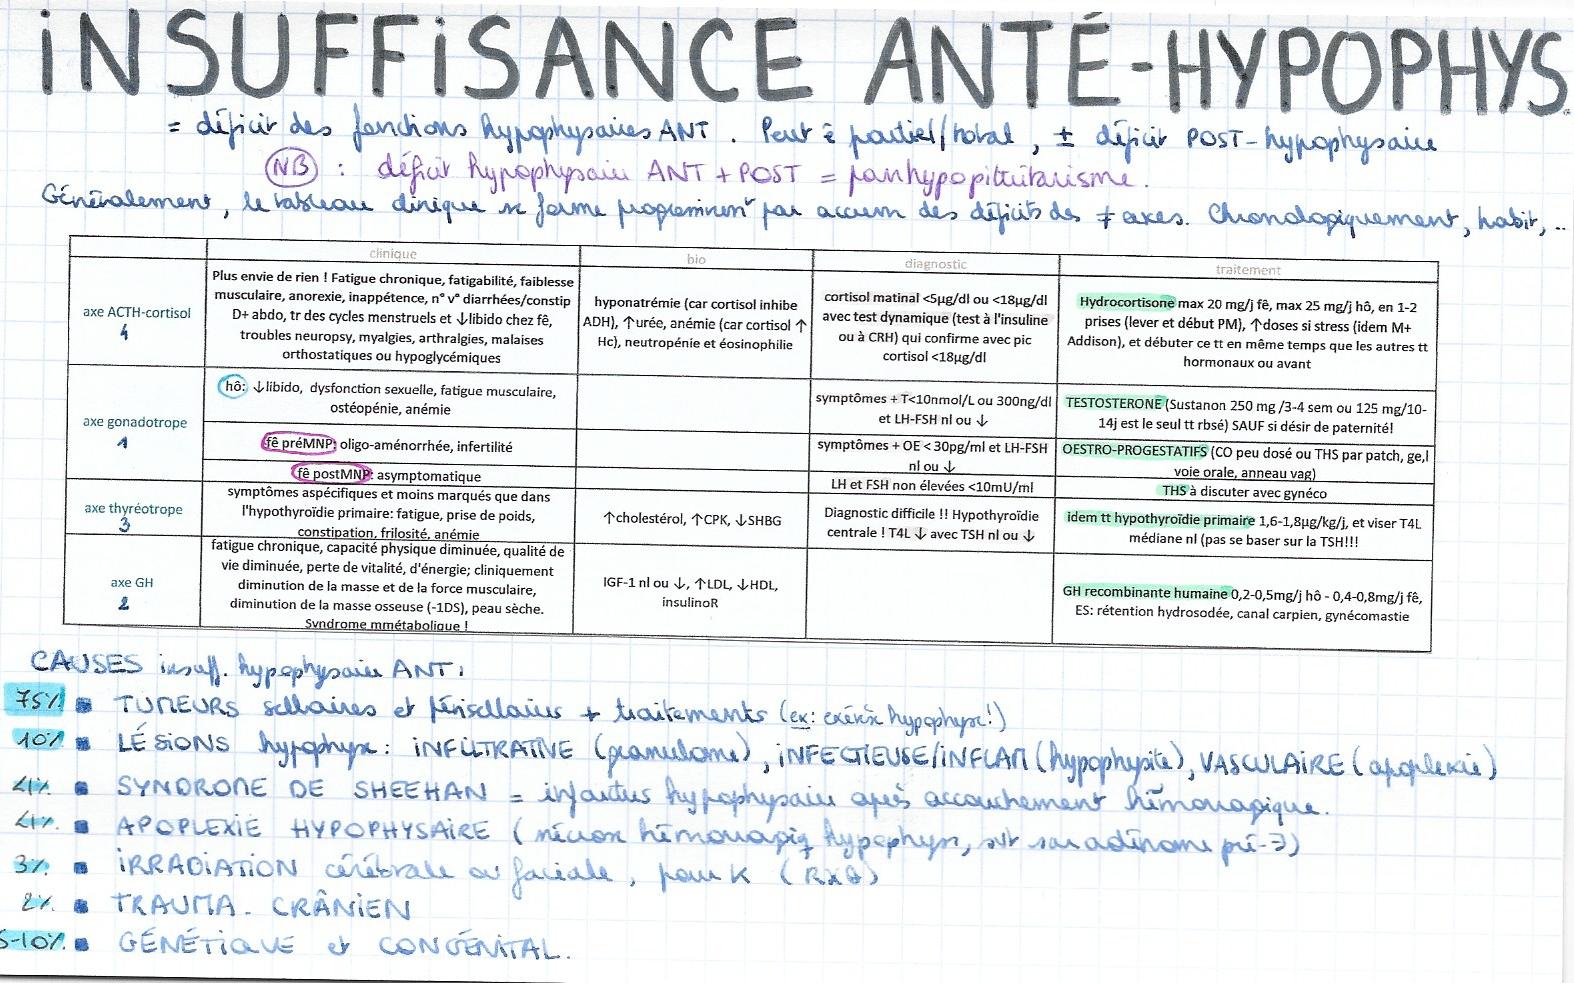 INSUFFISANCE ANTÉ-HYPOPHYS
= déficit des fonctions hypophysaires ANT. Peut ê partiel/total, ± déficit POST-hypophysaire
NB : déficit hypophysaire ANT + POST = panhypopituitarisme.
Généralement, le tableau clinique se forme progressivemt par accum des déficits des ≠ axes. Chronologiquement, habit, ..
clinique bio diagnostic traitement
axe ACTH-cortisol
4
Plus envie de rien ! Fatigue chronique, fatigabilité, faiblesse
musculaire, anorexie, inappétence, n° v° diarrhées/constip
D+ abdo, tr des cycles menstruels et ↓libido chez fê,
troubles neuropsy, myalgies, arthralgies, malaises
orthostatiques ou hypoglycémiques
hyponatrémie (car cortisol inhibe
ADH), ↑urée, anémie (car cortisol ↑
Hc), neutropénie et éosinophilie
cortisol matinal <5µg/dl ou <18µg/dl
avec test dynamique (test à l'insuline
ou à CRH) qui confirme avec pic
cortisol <18µg/dl
Hydrocortisone max 20 mg/j fê, max 25 mg/j hô, en 1-2
prises (lever et début PM), ↑doses si stress (idem M+
Addison), et débuter ce tt en même temps que les autres tt
hormonaux ou avant
axe gonadotrope
1
hô: ↓libido, dysfonction sexuelle, fatigue musculaire,
ostéopénie, anémie
symptômes + T<10nmol/L ou 300ng/dl
et LH-FSH nl ou ↓
TESTOSTERONE (Sustanon 250 mg /3-4 sem ou 125 mg/10-
14j est le seul tt rbsé) SAUF si désir de paternité!
fê préMNP: oligo-aménorrhée, infertilité
symptômes + OE < 30pg/ml et LH-FSH
nl ou ↓
OESTRO-PROGESTATIFS (CO peu dosé ou THS par patch, ge,l
voie orale, anneau vag)
fê postMNP: asymptomatique
LH et FSH non élevées <10mU/ml
THS à discuter avec gynéco
axe thyréotrope
3
symptômes aspécifiques et moins marqués que dans
l'hypothyroïdie primaire: fatigue, prise de poids,
constipation, frilosité, anémie
↑cholestérol, ↑CPK, ↓SHBG
Diagnostic difficile !! Hypothyroïdie
centrale ! T4L ↓ avec TSH nl ou ↓
idem tt hypothyroïdie primaire 1,6-1,8µg/kg/j, et viser T4L
médiane nl (pas se baser sur la TSH!!!
axe GH
2
fatigue chronique, capacité physique diminuée, qualité de
vie diminuée, perte de vitalité, d'énergie; cliniquement
diminution de la masse et de la force musculaire,
diminution de la masse osseuse (-1DS), peau sèche.
Syndrome mmétabolique !
IGF-1 nl ou ↓, ↑LDL, ↓HDL,
insulinoR
GH recombinante humaine 0,2-0,5mg/j hô - 0,4-0,8mg/j fê,
ES: rétention hydrosodée, canal carpien, gynécomastie
CAUSES insuff. hypophysaire ANT :
75% TUMEURS sellaires et périsellaires + traitements (ex: exérèse hypophyse!)
10% LÉSIONS hypophyse : INFILTRATIVE (granulome), INFECTIEUSE/INFLAM (hypophysite), VASCULAIRE (apoplexie)
<1% SYNDROME DE SHEEHAN = infarctus hypophysaire après accouchement hémorragique.
<1% APOPLEXIE HYPOPHYSAIRE (nécrose hémorragiq hypophyse, svt sur adénome pré-∃)
3% IRRADIATION cérébrale ou faciale, pour K (RXθ)
2% TRAUMA. CRÂNIEN
5-10% GÉNÉTIQUE et CONGÉNITAL.